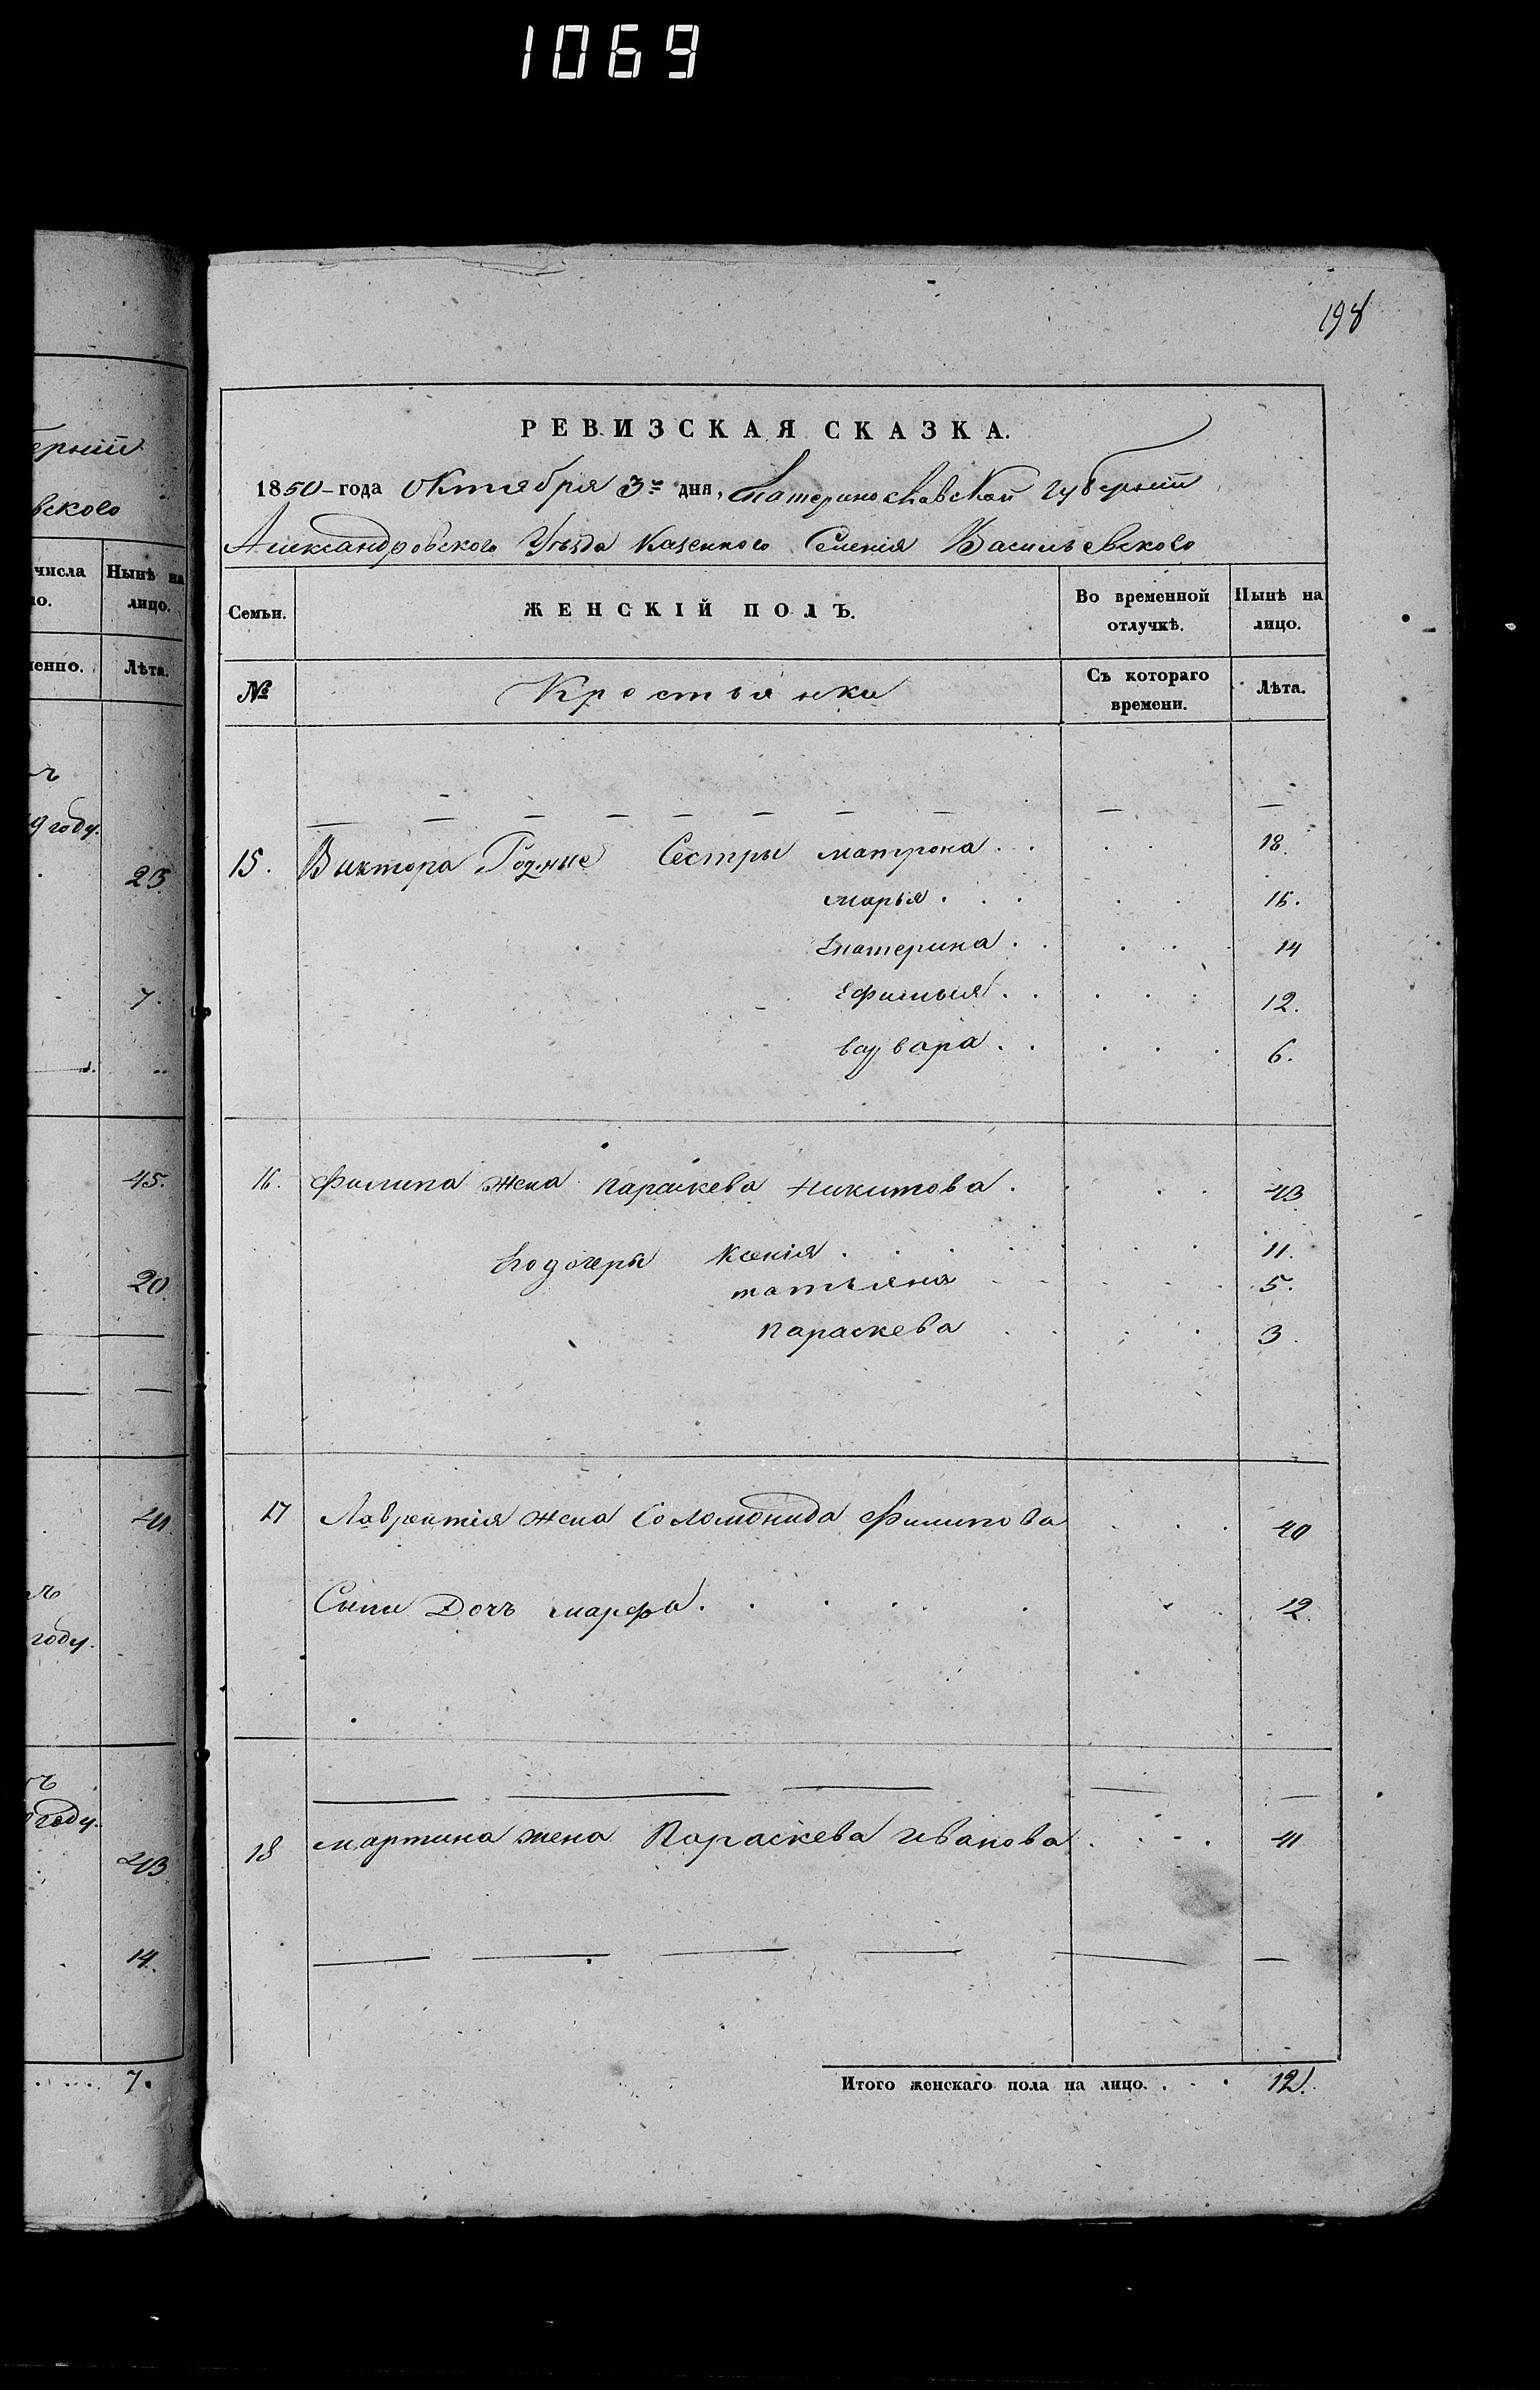 1069
198
РЕВИЗСКАЯ СКАЗКА.
1850-года Октября 3го дня, Екатеринославской губерніи
Александровского Уѣзда Казенного Селенія Васильевского
ерніи
вского
числа
Нынѣ на лицо.
ло.
менно.
Лѣта.
9 году.
23
7.
45.
20
году.
году.
43
14.
7.
Семьи.
ЖЕНСКІЙ ПОЛЪ.
Во временной отлучкѣ.
Нынѣ на лицо.
№
Крестьянки
Съ котораго времени.
Лѣта.
15. Виктора Родные Сестры матрона . . 18.
марья . . . 16.
Екатерина . . 14
Ефимыя . . 12.
варвара . . 6.
16. Филипа жена параскева Никитова . 43
Ево дочери Ксенія . 11.
татьяна 5.
параскева 3.
17 Лаврентія жена Соломонида Филипова 40
Дочь марфа . 12.
18 мартина жена Параскева Иванова . 41
Итого женскаго пола на лицо. . . . 12.